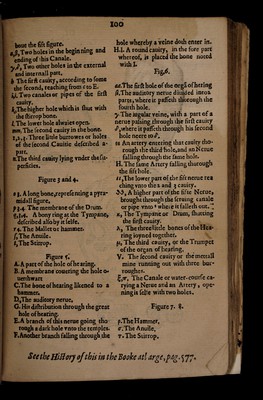 100
bout the fift figure.
α,β, Two holes in the beginning and ending of this Canale.
γ,δ, Two other holes in the external and internall part.
The first cauity, according to some the second, reaching from to E.
Two canales or pipes of the first cauity.
The higher hole which is shut with the stirrop bone.
The lower hole alwaies open.
mm. The second cauity in the bone.
1,2,3. Three little burrowes or holes of the second Cauitie described apart.
n. The third cauity lying vnder the superficies.
Figure 3 and 4.
A long bone, representing a pyramidall figure.
The membrane of the Drum.
A bony ring at the Tympane, described also by it selfe.
The Mallet or hammer.
The Anuile.
The Stirrop.
Figure 5.
A. A part of the hole of hearing.
B. A membrane couering the hole ouerthwart
C. The bone of hearing likened to a hammer.
D. The auditory nerue.
G. His distribution through the great hole of hearing.
E. A branch of this nerue going through a dark hole vnto the temples.
F. Another branch falling through the
hole whereby a veine doth enter in.
H.I. A round cauity, in the fore part whereof, is placed the bone noted with I.
Fig.6.
The first hole of the organ of hering
The auditory nerue diuided into parts, where it passeth thorough the fourth hole.
γ. The angular veine, with a part of a nerue passing through the first cauity, where it passeth through his second hole neere to
An artery entering that cauity thorough the third hole, and a Nerue falling through the same hole.
H. The same Artery falling through the fift hole.
The lower part of the fift nerue reaching vnto the 2 and 3 cauity.
A higher part of the fifte Nerue, brought through the second canale or pipe vnto where it falleth out.
The Tympane or Drum, shutting the first cauity.
λ, The three little bones of the Hearing ioyned together.
μ, The third cauity, or the Trumpet of the organ of hearing.
V. The second cauity or the metall mine running out with three burroughes.
The Canale or water-course carying a Nerue and an Artery, opening it selfe with two holes.
Figure 7. 8.
The Hammer,
The Anuile,
The Stirrop.
See the History of this in the Booke at large, pag. 577.